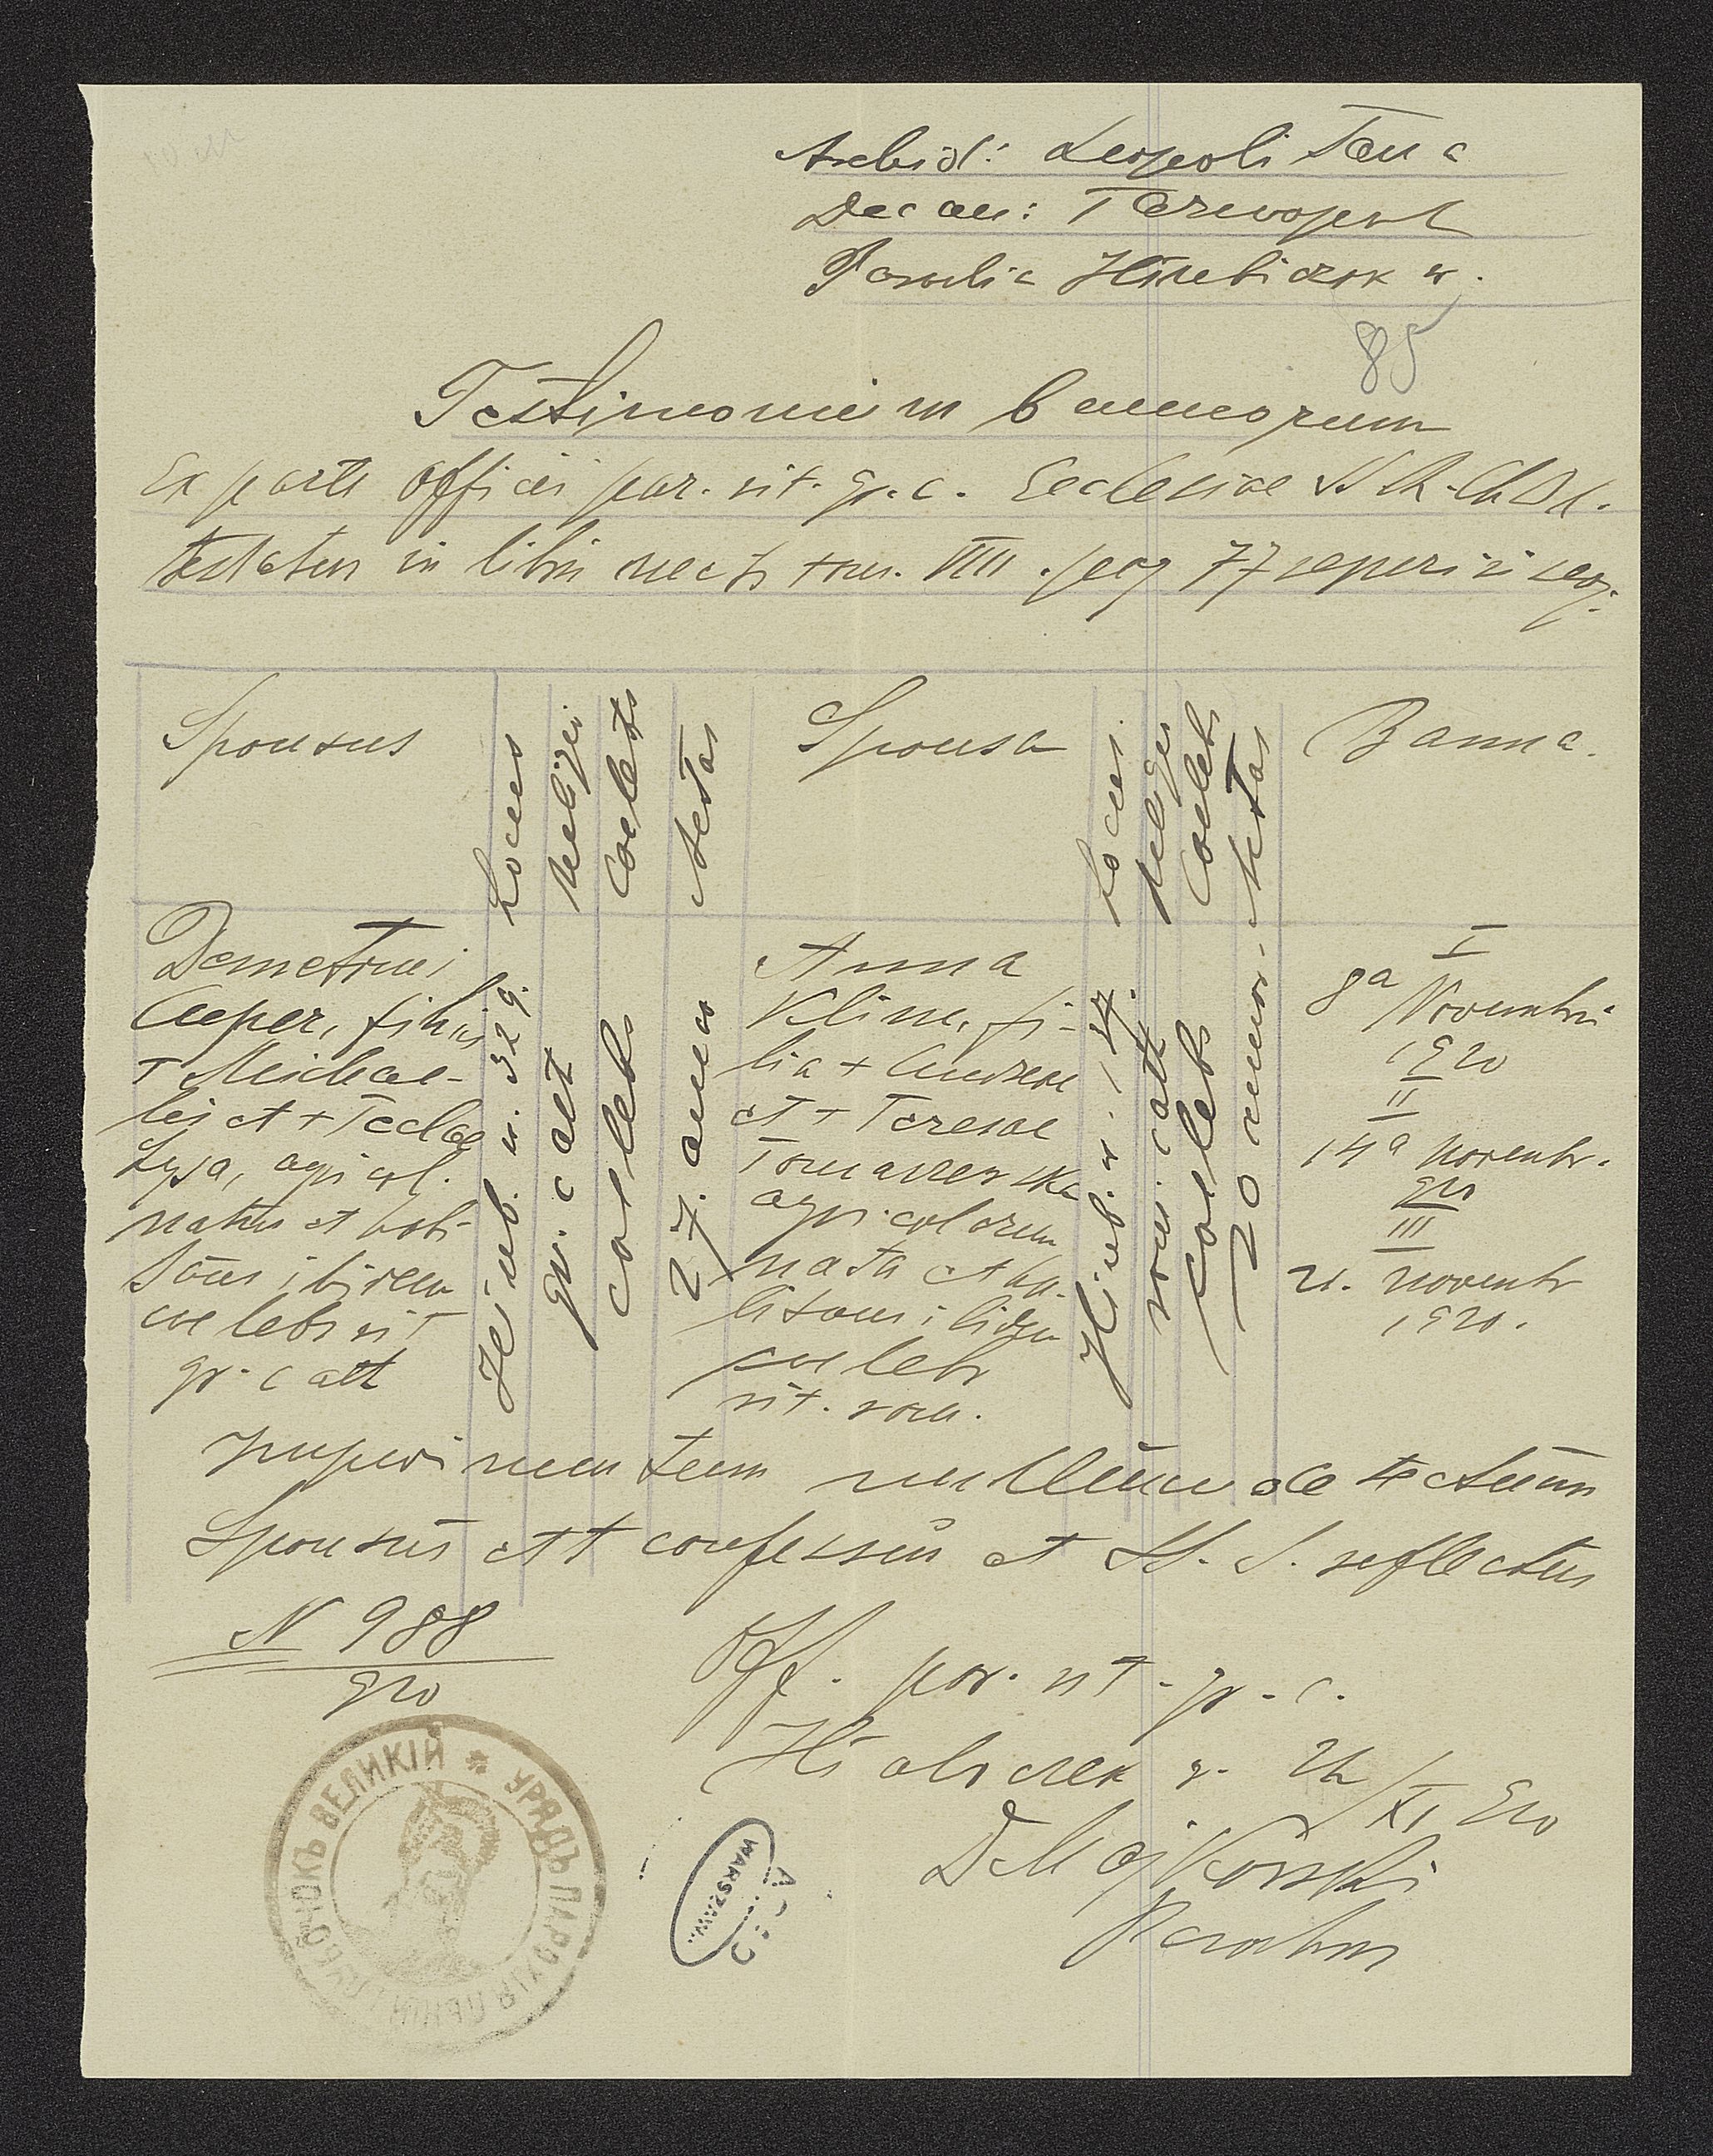 Archid: Leopoli Tana
Decan: Tarnopol
Parochia Hłubiczok w.
85
Testimonium bannorum
Ex parte officii par. rit. gr. c. Ecclesiae
testatur in libro tom. VIII pag 77 reperiri seq.
Sponsus
Locus
Religio
Coelebs
Aetas
Sponsa
Locus
Religio
Coelebs
Aetas
Banna
Demetrius
Cuper, filius
+ Michae-
lis et + Teclae
Łysa, agricol.
natus et habi-
tans ibidem
coelebs rit
gr. catt
Hłub. n. 329.
gr. catt
coelebs
27. annor
Anna
Klim, fi-
lia + Andreae
et + Teresae
Tomaszewska
agricolarum
nata et ha-
bitans ibidem
coelebs
rit. rom.
Hłub. n. 117.
rom. cath
coelebs
20 annor.
I
8a Novembri
1920
II
14a novembr.
920
III
21. novembr
1920.
Impedimentum nullum detectum
Sponsus est confessus et SS. S. refectus
N 988
920
Off. par. rit. gr. c.
Hłubiczek w. 22/XI 920
D Majkowski
Parochus
УРЯДЪ ПАРОХІЯЛЬНЫЙ ГЛУБОЧОКЪ ВЕЛИКІЙ *
WARSZAW